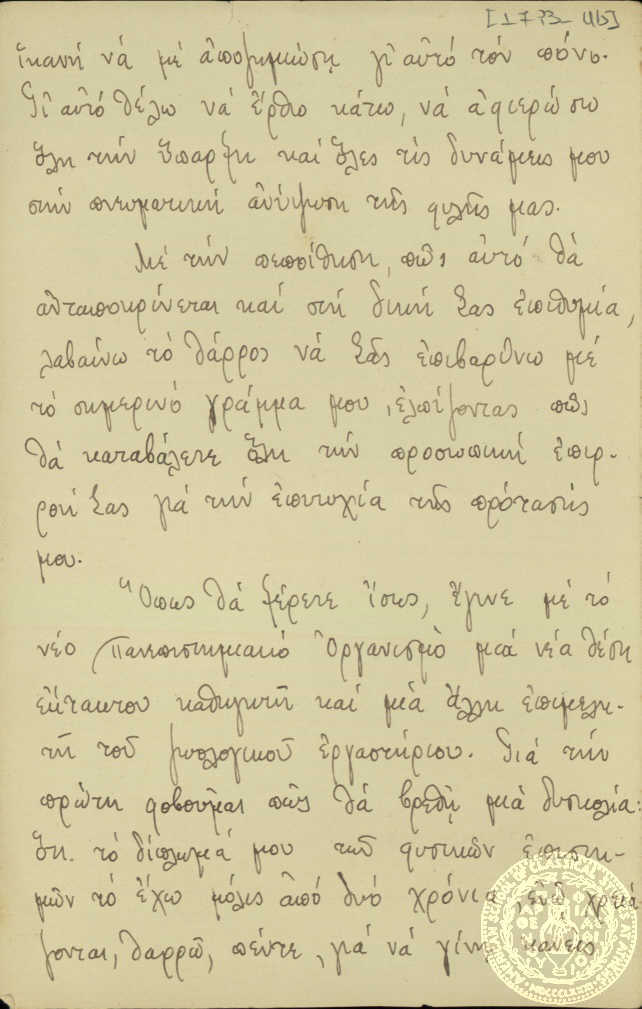 [1733-45]
ἱκανή νά μέ ἀποζημιώσῃ γι' αὐτό τόν πόνο.
Γι' αὐτό θέλω νά ἔρθω κάτω, νά ἀφιερώσω
ὅλη τήν ὕπαρξη καί ὅλες τίς δυνάμεις μου
στήν πνευματική ἀνύψωση τῆς φυλῆς μας.
Μέ τήν πεποίθηση, πῶς αὐτό θά
ἀνταποκρίνεται καί στή δική Σας ἐπιθυμία,
λαβαίνω τό θάρρος νά Σᾶς ἐπιβαρύνω μέ
τό σημερινό γράμμα μου, ἐλπίζοντας πῶς
θά καταβάλετε ὅλη τήν προσωπική ἐπιρ-
ροή Σας γιά τήν ἐπιτυχία τῆς πρότασής
μου.
Ὅπως θά ξέρετε ἴσως, ἔγινε μέ τό
νέο Πανεπιστημιακό Ὀργανισμό μιά νέα θέση
ἐκτάκτου καθηγητῆ καί μιά ἄλλη ἐπιμελη-
τῆ τοῦ ζωολογικοῦ ἐργαστήριου. Γιά τήν
πρώτη φοβοῦμαι πῶς θά βρεθῇ μιά δυσκολία:
ὅτι τό δίπλωμά μου τῶν φυσικῶν ἐπιστη-
μῶν τό ἔχω μόλις ἀπό δυό χρόνια, ἐνῶ χρειά
ζονται, θαρρῶ, πέντε, γιά νά γίνῃ κανείς
AMERICAN SCHOOL OF CLASSICAL STUDIES AT ATHENS
MDCCCLXXXI